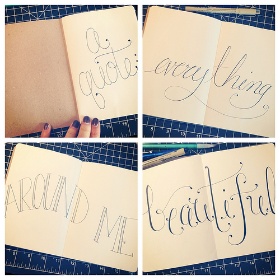 a
quote:
everything
AROUND ME
beautiful